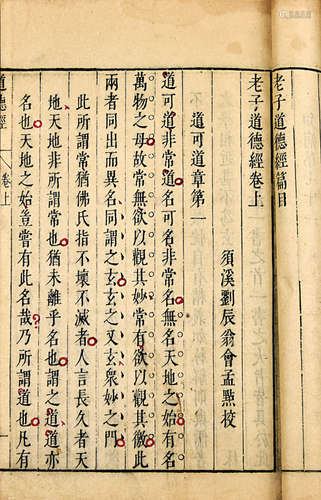 老子道德經篇目
老子道德經卷上
須溪劉辰翁會孟㸃校
道可道章第一
道可道非常道名可名非常名無名天地之始有名
萬物之母故常無欲以觀其妙常有欲以觀其徼此
兩者同出而異名同謂之玄玄之又玄衆妙之門
此所謂常猶佛氏指不壞不滅者人言長久者天
地天地非所謂常也猶未離乎名也謂之道道亦
名也天地之始豈嘗有此名哉乃所謂道也凡有
道德經
卷上